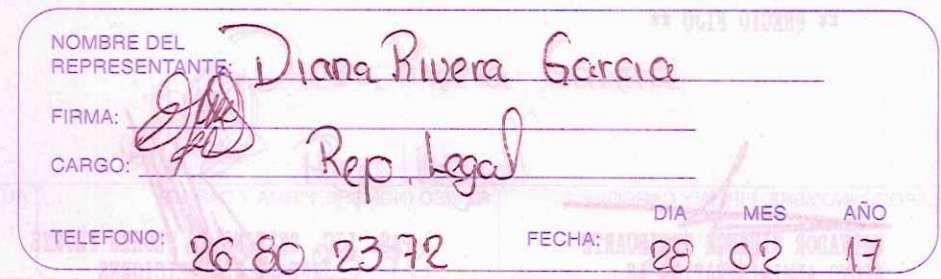 NOMBRE DEL
REPRESENTANTE: Diana Rivera Garcia
FIRMA:
CARGO: Rep. Legal
DIA MES AÑO
TELEFONO: 26 80 23 72 FECHA: 28 02 17